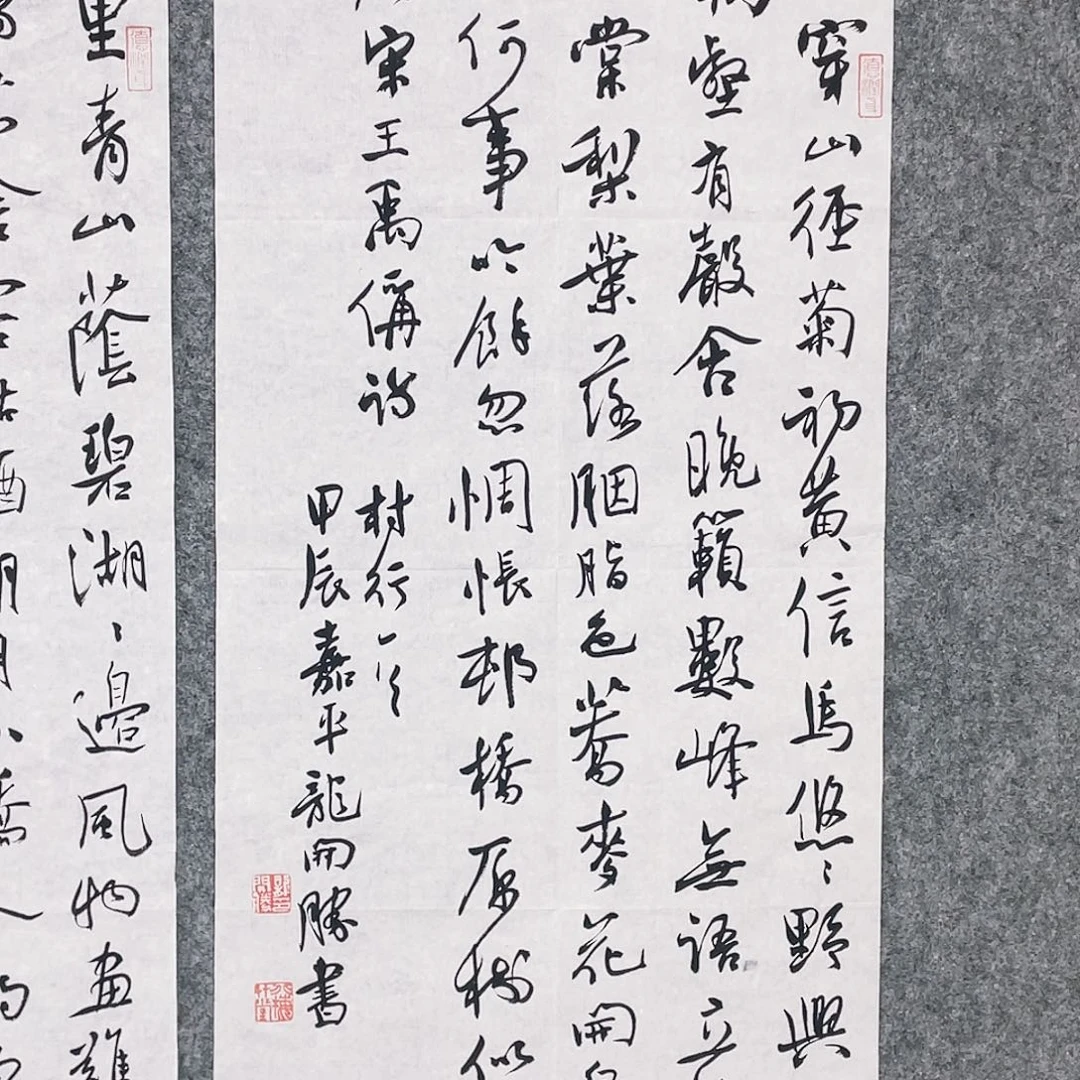 穿山徑菊初黄信馬悠〻野興
壑有聲含晚籟數峰無語立
棠梨葉落胭脂色蕎麥花開
何事吟餘忽惆悵邨橋原樹似
宋王禹偁詩 村行一首
甲辰嘉平龍開勝書
里青山蔭碧湖〻邊風物畫難